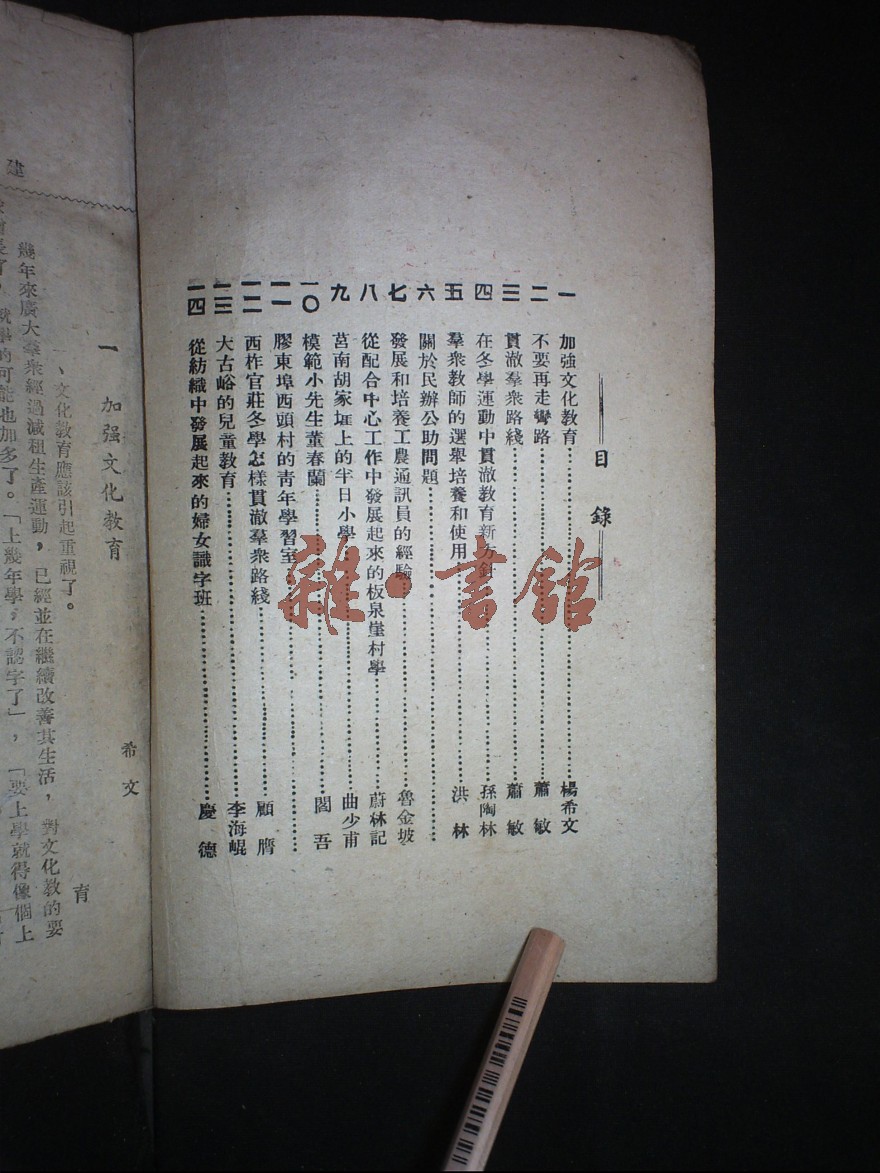 目錄
一 加強文化教育 楊希文
二 不要再走彎路 蕭敏
三 貫澈羣衆路綫 蕭敏
四 在冬學運動中貫澈教育新方針 孫陶林
五 羣衆教師的選舉培養和使用 洪林
六 關於民辦公助問題
七 發展和培養工農通訊員的經驗 魯金坡
八 從配合中心工作中發展起來的板泉崖村學 蔚林記
九 莒南胡家堐上的半日小學 曲少甫
一〇 模範小先生董春蘭 閻吾
一一 膠東埠西頭村的青年學習室
一二 西柞官莊冬學怎樣貫澈羣衆路綫 顧膺
一三 大古峪的兒童教育 李海崐
一四 從紡織中發展起來的婦女識字班 慶德
雜·書館
建
育
一 加强文化教育
希文
、文化教育應該引起重視了。
幾年來廣大羣衆經過減租生產運動，已經並在繼續改善其生活，對文化教的要
就學的可能也加多了。「上幾年學，不認字了」，「要上學就得像個上